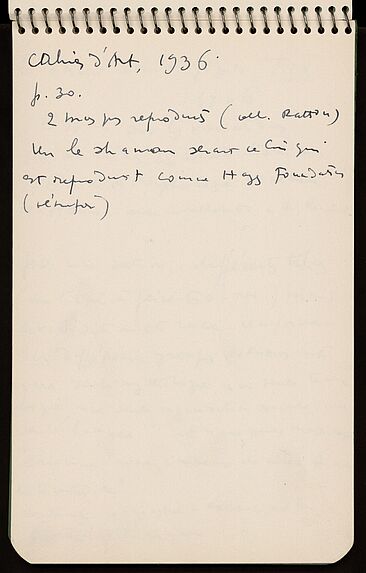 Cahiers d'Art, 1936.
p. 30.
2 masques reproduits (coll. Ratton)
Un le shaman serait celui qui
est reproduit comme Hays Foundation
(vérifier)